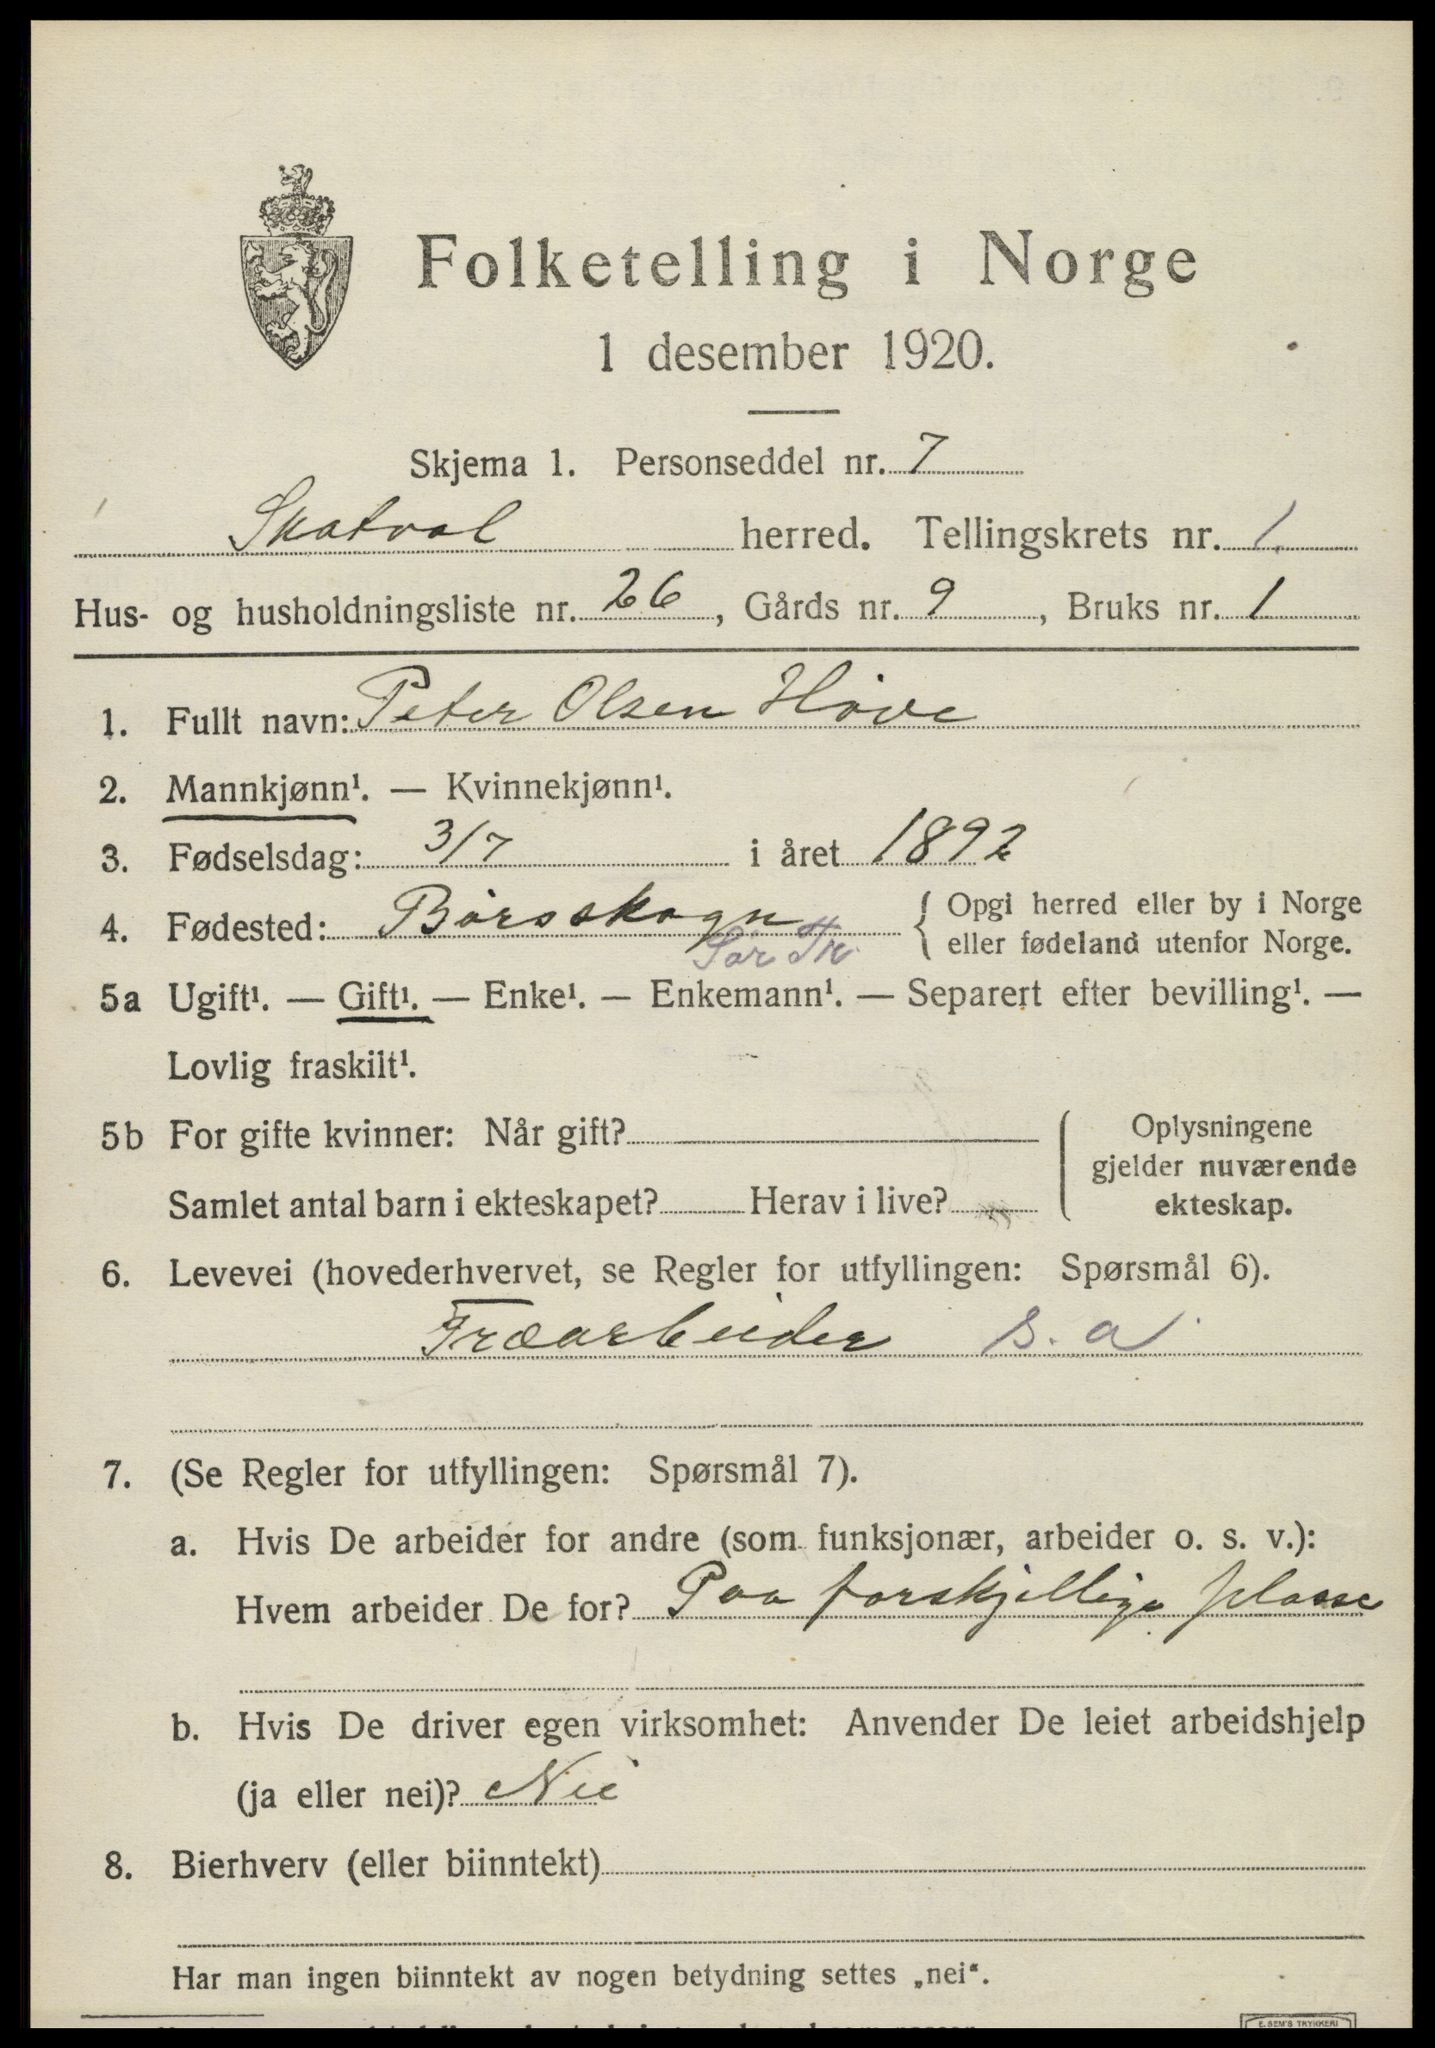 Folketelling i Norge
1 desember 1920.
Skjema 1. Personseddel nr. 7
Skatval herred. Tellingskrets nr. 1.
Hus- og husholdningsliste nr. 26, Gårds nr. 9, Bruks nr. 1
1. Fullt navn: Peter Olsen Hove
2. Mannkjønn¹. — Kvinnekjønn¹.
3. Fødselsdag: 3/7 i året 1892
4. Fødested: Börsskogn { Opgi herred eller by i Norge
Sør Tr. eller fødeland utenfor Norge.
5a Ugift¹. — Gift¹. — Enke¹. — Enkemann¹. — Separert efter bevilling¹. —
Lovlig fraskilt¹.
5b For gifte kvinner: Når gift? Oplysningene
gjelder nuværende
Samlet antal barn i ekteskapet? Herav i live? ekteskap.
6. Levevei (hovederhvervet, se Regler for utfyllingen: Spørsmål 6).
Træarbeider s. a.
7. (Se Regler for utfyllingen: Spørsmål 7).
a. Hvis De arbeider for andre (som funksjonær, arbeider o. s. v.):
Hvem arbeider De for? Paa forskjellige plasse
b. Hvis De driver egen virksomhet: Anvender De leiet arbeidshjelp
(ja eller nei)? Nei
8. Bierhverv (eller biinntekt)
Har man ingen biinntekt av nogen betydning settes „nei“.
E. SEM'S TRYKKERI